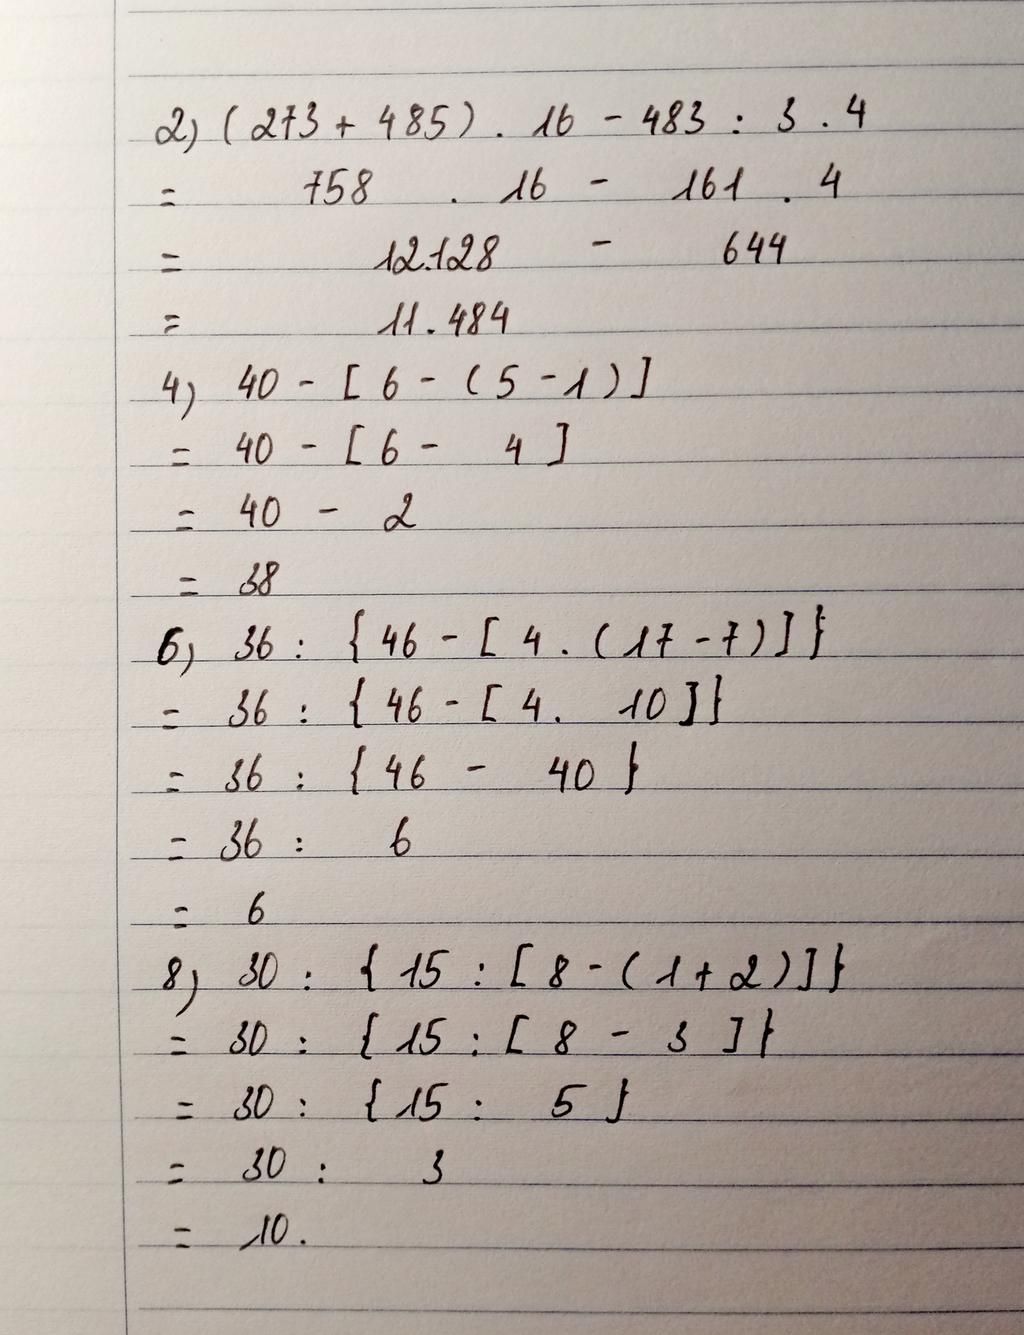 2) (273 + 485) . 16 - 483 : 3 . 4
= 758 . 16 - 161 . 4
= 12.128 - 644
= 11.484
4) 40 - [ 6 - ( 5 - 1 ) ]
= 40 - [ 6 - 4 ]
= 40 - 2
= 38
6) 36 : { 46 - [ 4 . ( 17 - 7 ) ] }
= 36 : { 46 - [ 4 . 10 ] }
= 36 : { 46 - 40 }
= 36 : 6
= 6
8) 30 : { 15 : [ 8 - ( 1 + 2 ) ] }
= 30 : { 15 : [ 8 - 3 ] }
= 30 : { 15 : 5 }
= 30 : 3
= 10.